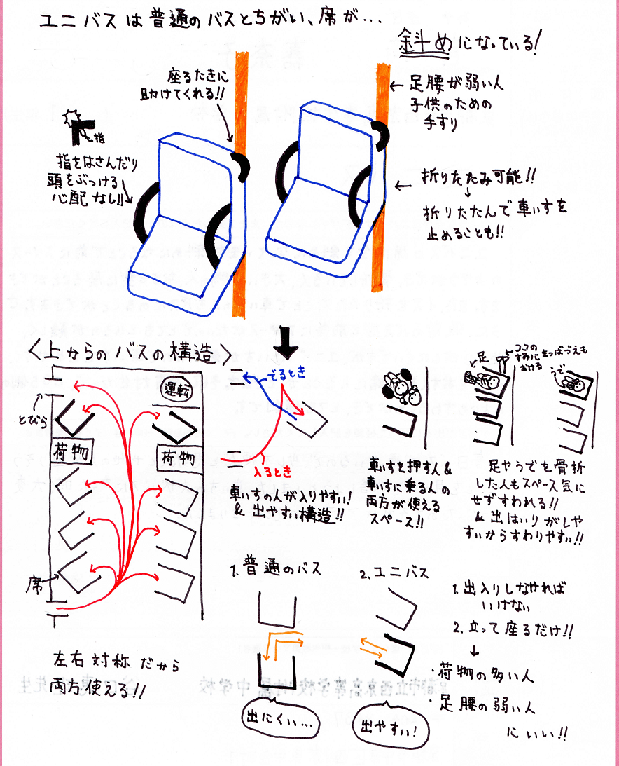 ユニバスは普通のバスとちがい、席が...
斜めになっている!
座るときに
助けてくれる!!
足腰が弱い人
子供のための
手すり
指
指をはさんだり
頭をぶつける
心配なし!!
折りたたみ可能!!
折りたたんで車いすを
止めることも!!
〈上からのバスの構造〉
運転
とびら
荷物
荷物
席
左右対称だから
両方使える!!
でるとき
入るとき
車いすの人が入りやすい!
&出やすい構造!!
車いすを押す人&
車いすに乗る人の
両方が使える
スペース!!
足
ココの
すみにまつばづえも
おける
うで
足やうでを骨折
した人もスペース気に
せずすわれる!!
&出はいりがしや
すいからすわりやすい!!
1.普通のバス
出にくい...
2.ユニバス
出やすい!
1.出入りしなければ
いけない
2.立って座るだけ!!
・荷物の多い人
・足腰の弱い人
にいい!!